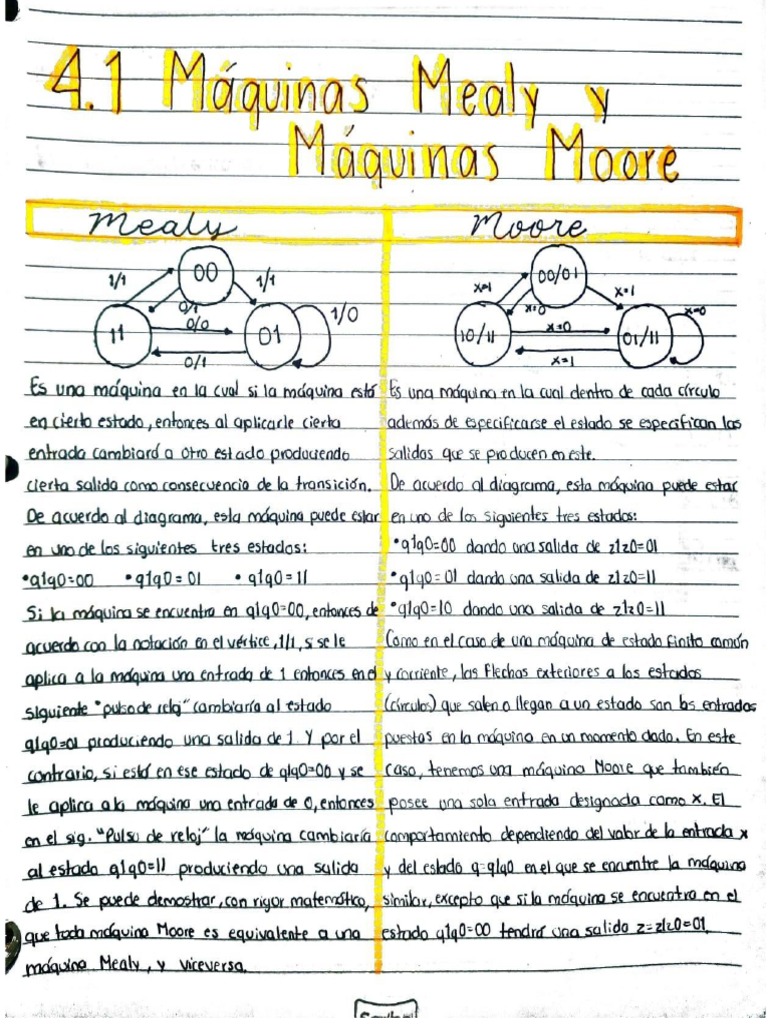 4.1 Máquinas Mealy y
Máquinas Moore
Mealy
00
1/1
1/1
0/1
0/0
1/0
11
01
0/1
Es una máquina en la cual si la máquina está
en cierto estado, entonces al aplicarle cierta
entrada cambiará a otro estado produciendo
cierta salida como consecuencia de la transición.
De acuerdo al diagrama, esta máquina puede estar
en uno de los siguientes tres estados:
•q1q0=00 •q1q0=01 •q1q0=11
Si la máquina se encuentra en q1q0=00, entonces de
acuerdo con la notación en el vértice, 1/1, si se le
aplica a la máquina una entrada de 1 entonces en el
siguiente "pulso de reloj" cambiaría al estado
q1q0=01 produciendo una salida de 1. Y por el
contrario, si está en ese estado de q1q0=00 y se
le aplica a la máquina una entrada de 0, entonces
en el sig. "Pulso de reloj" la máquina cambiaría
al estado q1q0=11 produciendo una salida
de 1. Se puede demostrar, con rigor matemático,
que toda máquina Moore es equivalente a una
máquina Mealy, y viceversa.
Moore
00/01
x=1
x=1
x=0
x=0
x=0
10/11
01/11
x=1
Es una máquina en la cual dentro de cada círculo
además de especificarse el estado se especifican las
salidas que se producen en este.
De acuerdo al diagrama, esta máquina puede estar
en uno de los siguientes tres estados:
•q1q0=00 dando una salida de z1z0=01
•q1q0=01 dando una salida de z1z0=11
•q1q0=10 dando una salida de z1z0=11
Como en el caso de una máquina de estado finito común
y corriente, las flechas exteriores a los estados
(círculos) que salen o llegan a un estado son las entradas
puestas en la máquina en un momento dado. En este
caso, tenemos una máquina Moore que también
posee una sola entrada designada como x. El
comportamiento dependiendo del valor de la entrada x
y del estado q=q1q0 en el que se encuentre la máquina
similar, excepto que si la máquina se encuentra en el
estado q1q0=00 tendrá una salida z=z1z0=01.